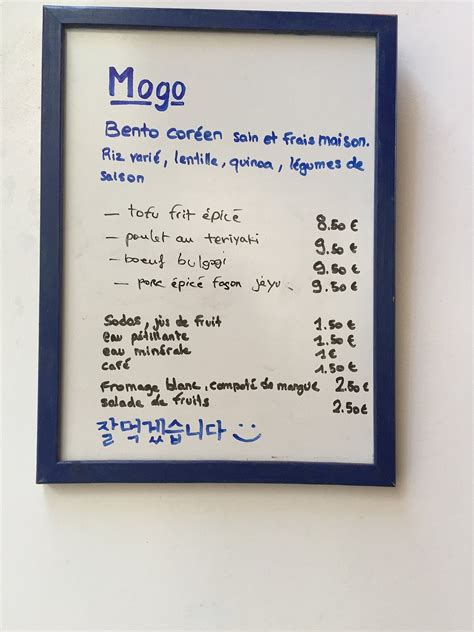 Mogo
Bento coréen sain et frais maison.
Riz varié, lentille, quinoa, légumes de
saison
— tofu frit épicé 8.50 €
— poulet au teriyaki 9.50 €
— boeuf bulgogi 9.50 €
— porc épicé façon jeyu. 9.50 €
Sodas, jus de fruit 1.50 €
eau pétillante 1.50 €
eau minérale 1 €
café 1.50 €
Fromage blanc, compote de mangue 2.50 €
salade de fruits 2.50 €
잘 먹겠습니다